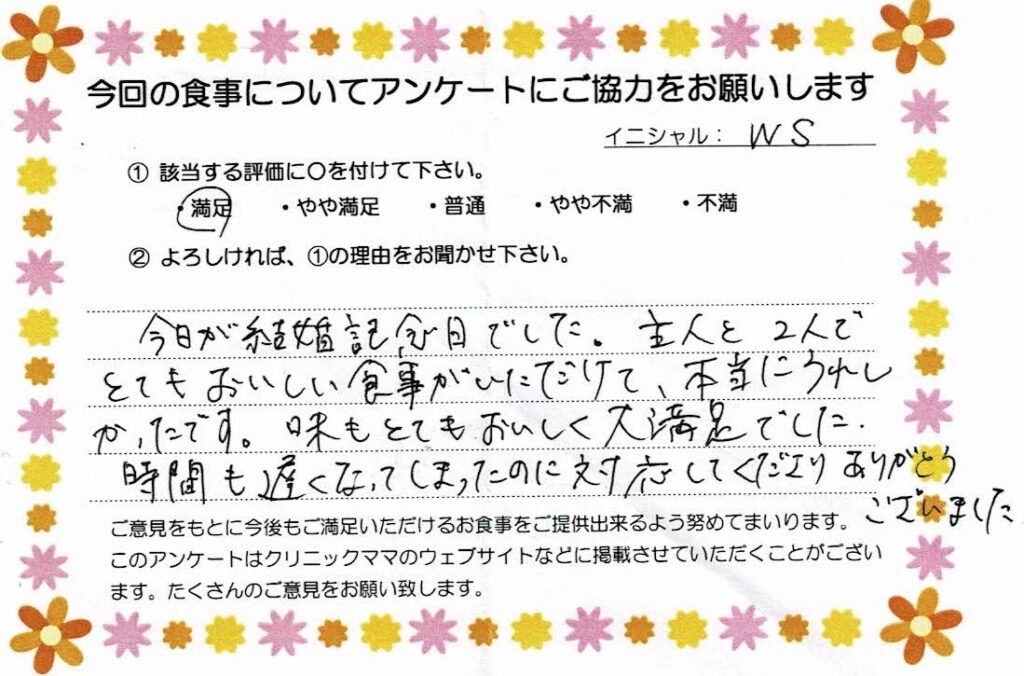 今回の食事についてアンケートにご協力をお願いします
イニシャル： WS
① 該当する評価に○を付けて下さい。
・満足 ・やや満足 ・普通 ・やや不満 ・不満
② よろしければ、①の理由をお聞かせ下さい。
今日が結婚記念日でした。主人と2人で
とてもおいしい食事がいただけて、本当にうれし
かったです。味もとてもおいしく大満足でした.
時間も遅くなってしまったのに対応してくださりありがとう
ございました
ご意見をもとに今後もご満足いただけるお食事をご提供出来るよう努めてまいります。
このアンケートはクリニックママのウェブサイトなどに掲載させていただくことがござい
ます。たくさんのご意見をお願い致します。